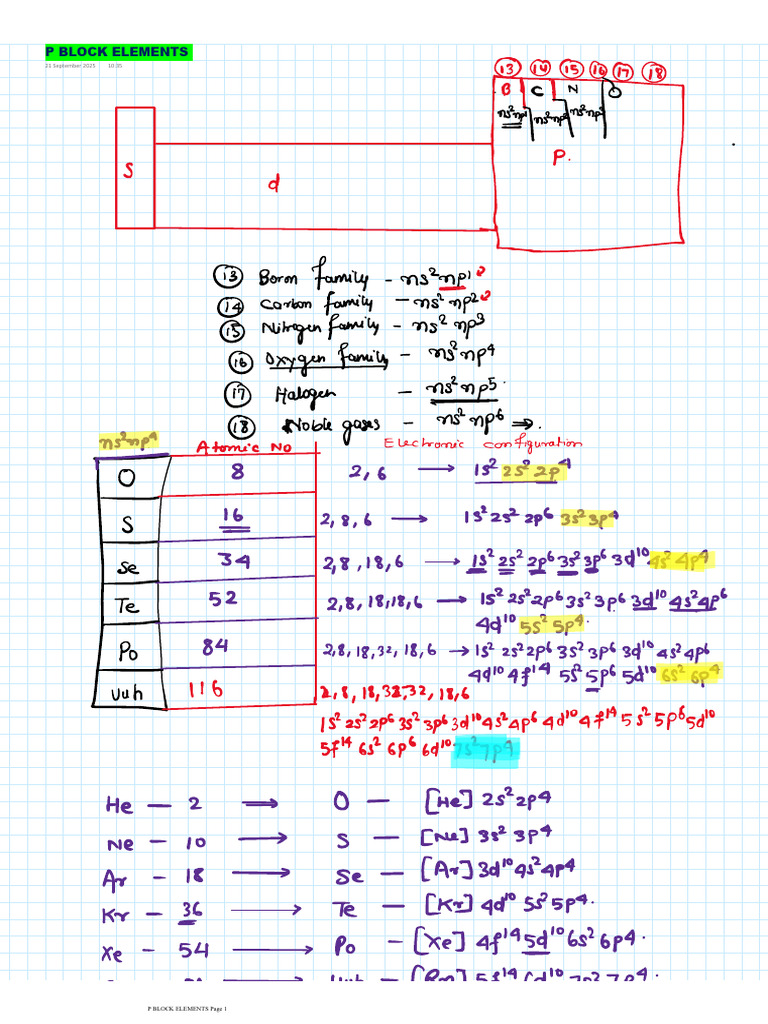 P BLOCK ELEMENTS
21 September 2025 10:35
⑬ ⑭ ⑮ ⑯ ⑰ ⑱
B C N O
ns²np¹ ns²np² ns²np³
S d P.
⑬ Boron family - ns²np1
⑭ Carbon family - ns² np2
⑮ Nitrogen family - ns² np3
⑯ Oxygen family - ns² np4
⑰ Halogen - ns² np5.
⑱ Noble gases - ns² np6 ⇒.
ns²np4 Atomic No Electronic configuration
O 8 2, 6 → 1s² 2s² 2p4
S 16 2, 8, 6 → 1s² 2s² 2p6 3s² 3p4
Se 34 2, 8, 18, 6 → 1s² 2s² 2p6 3s² 3p6 3d10 4s² 4p4
Te 52 2, 8, 18, 18, 6 → 1s² 2s² 2p6 3s² 3p6 3d10 4s² 4p6
4d10 5s² 5p4.
Po 84 2, 8, 18, 32, 18, 6 → 1s² 2s² 2p6 3s² 3p6 3d10 4s² 4p6
4d10 4f14 5s² 5p6 5d10 6s² 6p4
Uuh 116 2, 8, 18, 32, 32, 18, 6
1s² 2s² 2p6 3s² 3p6 3d10 4s² 4p6 4d10 4f14 5s² 5p6 5d10
5f14 6s² 6p6 6d10 7s² 7p4
He - 2 → O - [He] 2s² 2p4
Ne - 10 → S - [Ne] 3s² 3p4
Ar - 18 → Se - [Ar] 3d10 4s² 4p4
Kr - 36 → Te - [Kr] 4d10 5s² 5p4.
Xe - 54 → Po - [Xe] 4f14 5d10 6s² 6p4.
Uuh - [Rn] 5f14 6d10 7s² 7p4.
P BLOCK ELEMENTS Page 1